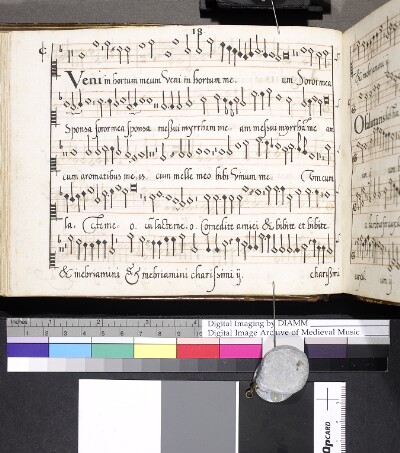 18
Veni in hortum meum Veni in hortum me um Soror mea
Sponsa soror mea sponsa messui myrrham me um messui myrrham me um
cum aromatibus me is cum melle meo bibi Vinum me Cum cum
la Cte me o cũ lacte me o Comedite amici & bibite et bibite
& inebriamini & inebriamini charissimi ij. charissimi
Inches
Digital Imaging by DIAMM
Digital Image Archive of Medieval Music
OpCARD